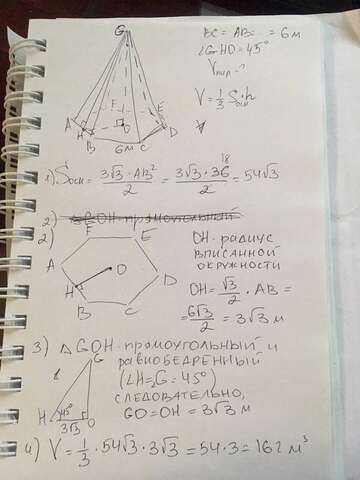 G
BC = AB = ... = 6м
∠GHO = 45°
Vпир - ?
V = 1/3 Sосн · h
F E
A H B O D
6м C
1) Sосн = 3√3 · AB²/2 = 3√3 · 36/2 = 54√3
18
2)
2)
F E
A O D
H B C
OH - радиус
вписанной
окружности
OH = √3/2 · AB =
= 6√3/2 = 3√3 м
3) △GOH - прямоугольный и
равнобедренный
(∠H = ∠G = 45°)
следовательно,
GO = OH = 3√3 м
G
H 45° O
3√3
4) V = 1/3 · 54√3 · 3√3 = 54 · 3 = 162 м³